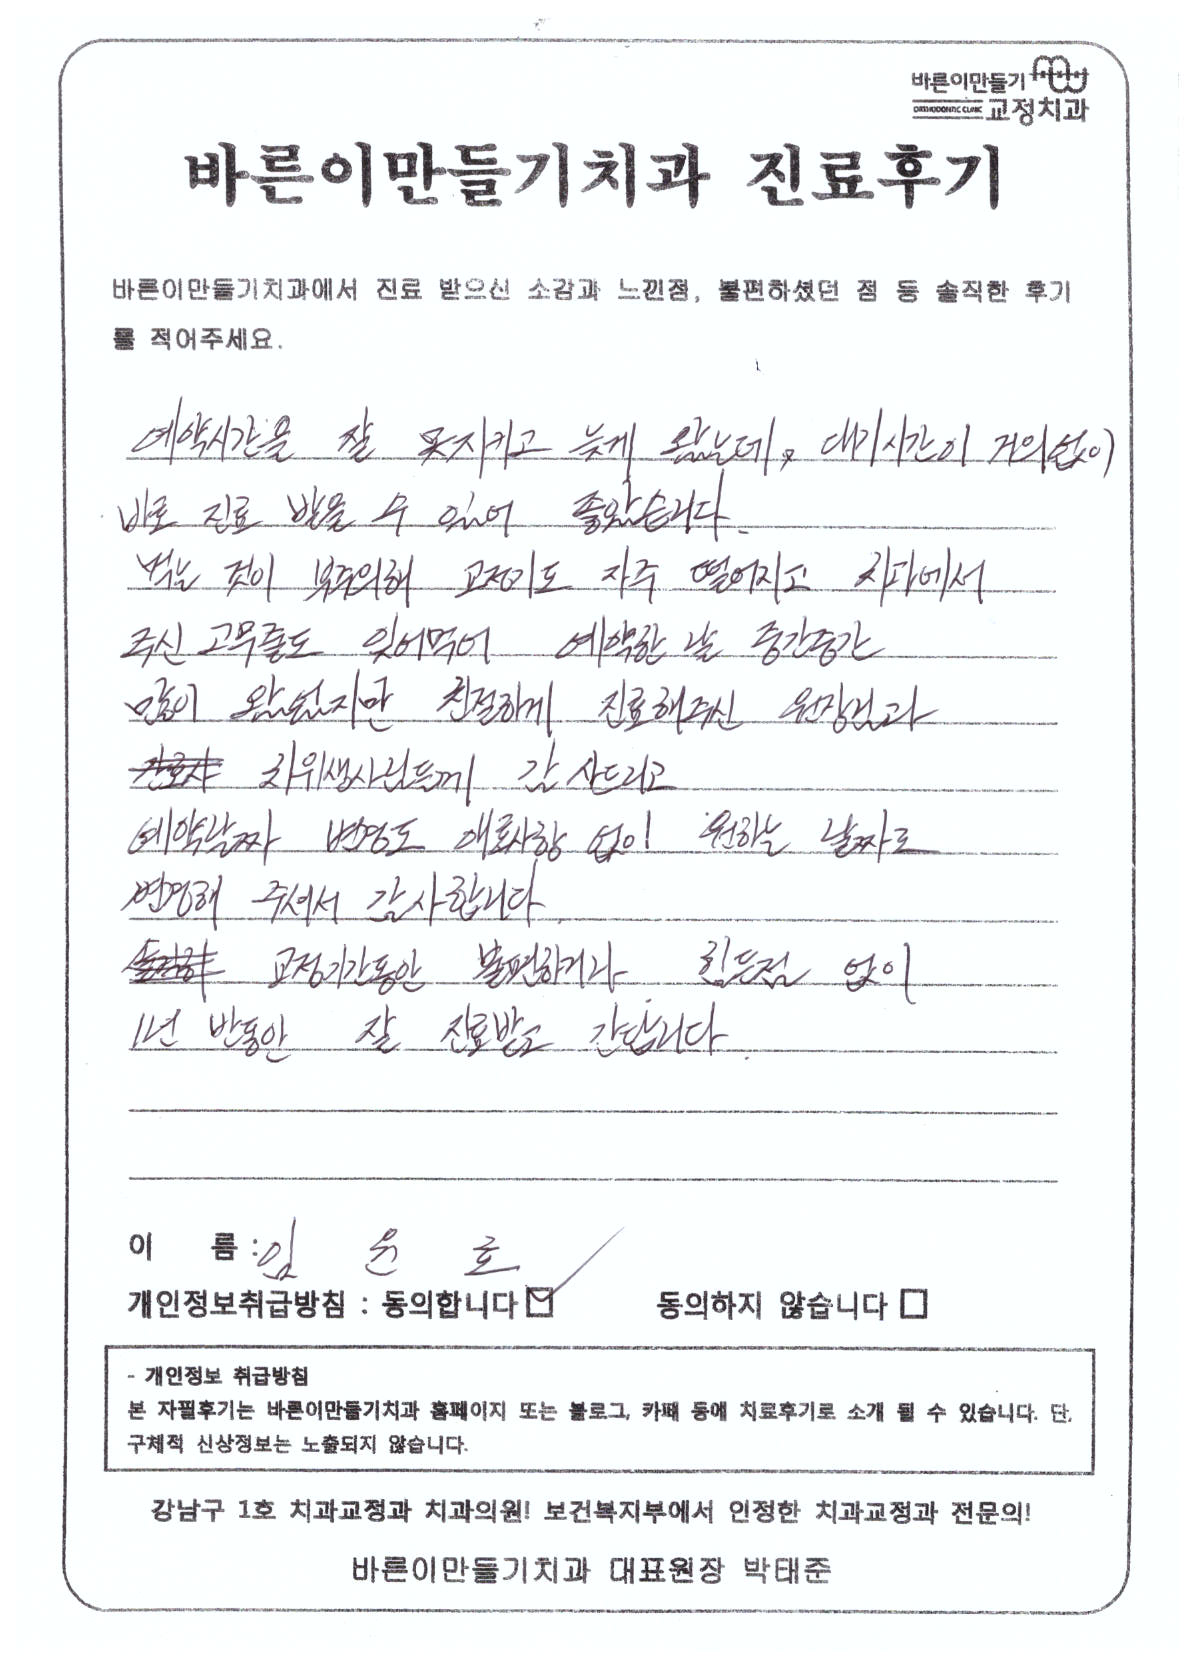 바른이만들기
ORTHODONTIC CLINIC 교정치과
바른이만들기치과 진료후기
바른이만들기치과에서 진료 받으신 소감과 느낀점, 불편하셨던 점 등 솔직한 후기
를 적어주세요.
예약시간을 잘 못지키고 늦게 왔는데, 대기시간이 거의없이
바로 진료 받을 수 있어 좋았습니다.
먹는 것이 부주의해 교정기도 자주 떨어지고 치과에서
주신 고무줄도 잊어먹어 예약한 날 중간중간
많이 왔었지만 친절하게 진료해주신 원장님과
치위생사님들께 감사드리고
예약날짜 변경도 애로사항 없이 원하는 날짜로
변경해 주셔서 감사합니다.
교정기간동안 불편하거나 힘든점 없이
1년 반동안 잘 진료받고 간답니다
이 름 : 임 윤 호
개인정보취급방침 : 동의합니다 동의하지 않습니다
- 개인정보 취급방침
본 자필후기는 바른이만들기치과 홈페이지 또는 블로그, 카페 등에 치료후기로 소개 될 수 있습니다. 단,
구체적 신상정보는 노출되지 않습니다.
강남구 1호 치과교정과 치과의원! 보건복지부에서 인정한 치과교정과 전문의!
바른이만들기치과 대표원장 박태준